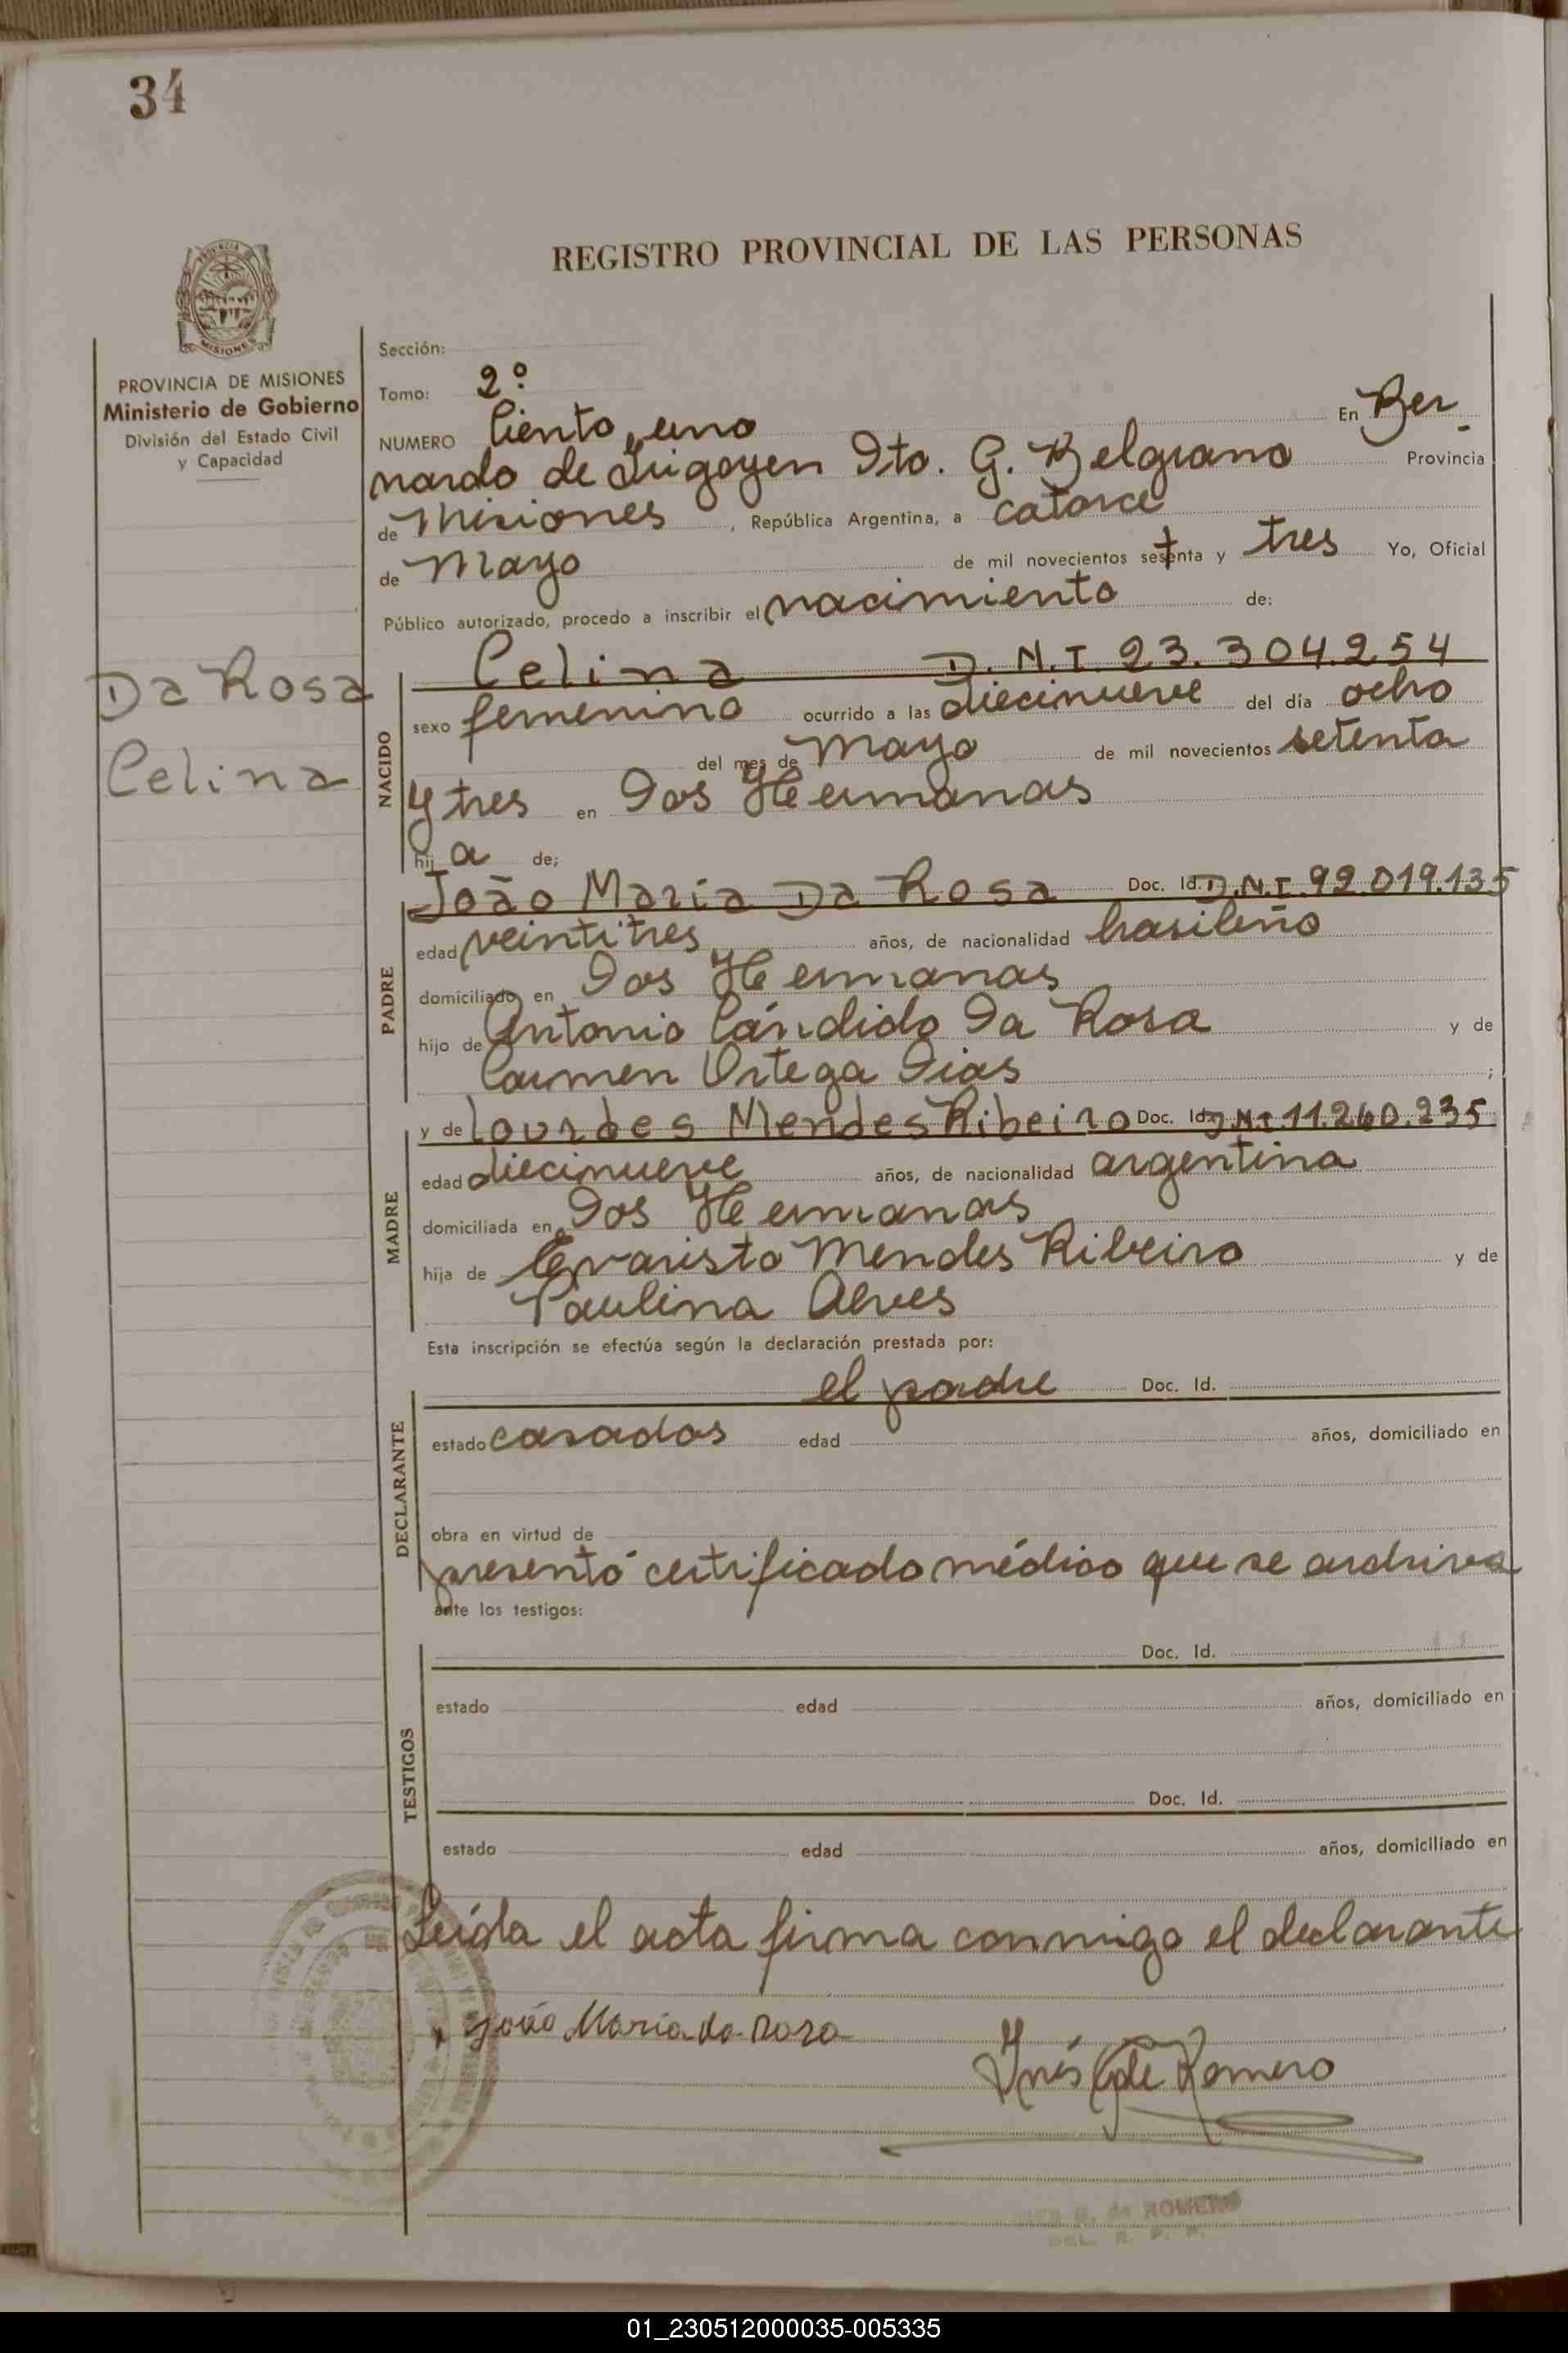 34
REGISTRO PROVINCIAL DE LAS PERSONAS
MISIONES
PROVINCIA DE MISIONES
Ministerio de Gobierno
División del Estado Civil
y Capacidad
Da Rosa
Celina
Sección:
Tomo: 2º
NUMERO Ciento uno En Ber-
nardo de Irigoyen Dto. G. Belgrano Provincia
de Misiones, República Argentina, a catorce
de Mayo de mil novecientos setenta y tres Yo, Oficial
Público autorizado, procedo a inscribir el nacimiento de:
NACIDO
Celina D.N.I 23.304.254
sexo femenino ocurrido a las diecinueve del día ocho
del mes de Mayo de mil novecientos setenta
y tres en Dos Hermanas
hij a de;
PADRE
João Maria Da Rosa Doc. Id. D.N.I. 92.019.135
edad veintitres años, de nacionalidad brasileño
domiciliado en Dos Hermanas
hijo de Antonio Cándido Da Rosa y de
Carmen Ortega Dias ;
MADRE
y de Lourdes Mendes Ribeiro Doc. Id. D.N.I. 11.260.235
edad diecinueve años, de nacionalidad argentina
domiciliada en Dos Hermanas
hija de Evaristo Mendes Ribeiro y de
Paulina Alves
Esta inscripción se efectúa según la declaración prestada por:
DECLARANTE
el padre Doc. Id.
estado casados edad años, domiciliado en
obra en virtud de
presentó certificado médico que se archiva
ante los testigos:
TESTIGOS
Doc. Id.
estado edad años, domiciliado en
Doc. Id.
estado edad años, domiciliado en
Leída el acta firma conmigo el declarante
João Maria da Rosa
Inés G de Romero
G. de ROMERO
01_230512000035-005335